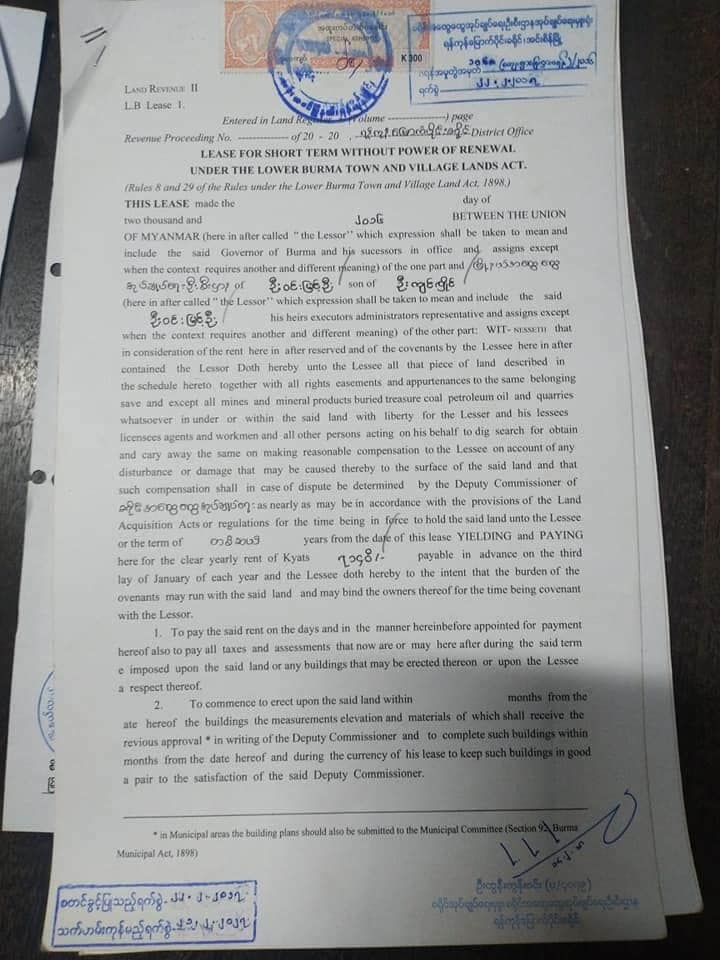 K 300
LAND REVENUE II
L.B Lease 1.
Entered in Land Register (Volume ---------------) page
Revenue Proceeding No. -------------- of 20 - 20 , District Office
LEASE FOR SHORT TERM WITHOUT POWER OF RENEWAL
UNDER THE LOWER BURMA TOWN AND VILLAGE LANDS ACT.
(Rules 8 and 29 of the Rules under the Lower Burma Town and Village Land Act, 1898.)
THIS LEASE made the day of
two thousand and ၂၀၁၆ BETWEEN THE UNION
OF MYANMAR (here in after called " the Lessor'' which expression shall be taken to mean and
include the said Governor of Burma and his sucessors in office and assigns except
when the context requires another and different meaning) of the one part and
of ဦးဝင်းမြင့်ဦး son of ဦးကျင်လှိုင်
(here in after called " the Lessor'' which expression shall be taken to mean and include the said
ဦးဝင်းမြင့်ဦး his heirs executors administrators representative and assigns except
when the context requires another and different meaning) of the other part: WIT- NESSETH that
in consideration of the rent here in after reserved and of the covenants by the Lessee here in after
contained the Lessor Doth hereby unto the Lessee all that piece of land described in
the schedule hereto together with all rights easements and appurtenances to the same belonging
save and except all mines and mineral products buried treasure coal petroleum oil and quarries
whatsoever in under or within the said land with liberty for the Lesser and his lessees
licensees agents and workmen and all other persons acting on his behalf to dig search for obtain
and cary away the same on making reasonable compensation to the Lessee on account of any
disturbance or damage that may be caused thereby to the surface of the said land and that
such compensation shall in case of dispute be determined by the Deputy Commissioner of
as nearly as may be in accordance with the provisions of the Land
Acquisition Acts or regulations for the time being in force to hold the said land unto the Lessee
or the term of တစ်ဆယ် years from the date of this lease YIELDING and PAYING
here for the clear yearly rent of Kyats payable in advance on the third
lay of January of each year and the Lessee doth hereby to the intent that the burden of the
ovenants may run with the said land and may bind the owners thereof for the time being covenant
with the Lessor.
1. To pay the said rent on the days and in the manner hereinbefore appointed for payment
hereof also to pay all taxes and assessments that now are or may here after during the said term
e imposed upon the said land or any buildings that may be erected thereon or upon the Lessee
a respect thereof.
2. To commence to erect upon the said land within months from the
ate hereof the buildings the measurements elevation and materials of which shall receive the
revious approval * in writing of the Deputy Commissioner and to complete such buildings within
months from the date hereof and during the currency of his lease to keep such buildings in good
a pair to the satisfaction of the said Deputy Commissioner.
* in Municipal areas the building plans should also be submitted to the Municipal Committee (Section 92 Burma
Municipal Act, 1898)
စတင်ခွင့်ပြုသည့်ရက်စွဲ ၂၂.၂.၂၀၁၇
သက်တမ်းကုန်မည့်ရက်စွဲ ၂၁.၂.၂၀၂၇